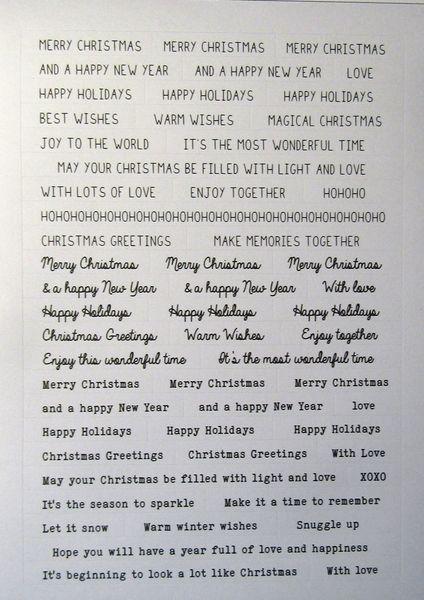 MERRY CHRISTMAS MERRY CHRISTMAS MERRY CHRISTMAS
AND A HAPPY NEW YEAR AND A HAPPY NEW YEAR LOVE
HAPPY HOLIDAYS HAPPY HOLIDAYS HAPPY HOLIDAYS
BEST WISHES WARM WISHES MAGICAL CHRISTMAS
JOY TO THE WORLD IT'S THE MOST WONDERFUL TIME
MAY YOUR CHRISTMAS BE FILLED WITH LIGHT AND LOVE
WITH LOTS OF LOVE ENJOY TOGETHER HOHOHO
HOHOHOHOHOHOHOHOHOHOHOHOHOHOHOHOHOHOHOHOHOHO
CHRISTMAS GREETINGS MAKE MEMORIES TOGETHER
Merry Christmas Merry Christmas Merry Christmas
& a happy New Year & a happy New Year With love
Happy Holidays Happy Holidays Happy Holidays
Christmas Greetings Warm Wishes Enjoy together
Enjoy this wonderful time It's the most wonderful time
Merry Christmas Merry Christmas Merry Christmas
and a happy New Year and a happy New Year love
Happy Holidays Happy Holidays Happy Holidays
Christmas Greetings Christmas Greetings With Love
May your Christmas be filled with light and love XOXO
It's the season to sparkle Make it a time to remember
Let it snow Warm winter wishes Snuggle up
Hope you will have a year full of love and happiness
It's beginning to look a lot like Christmas With love